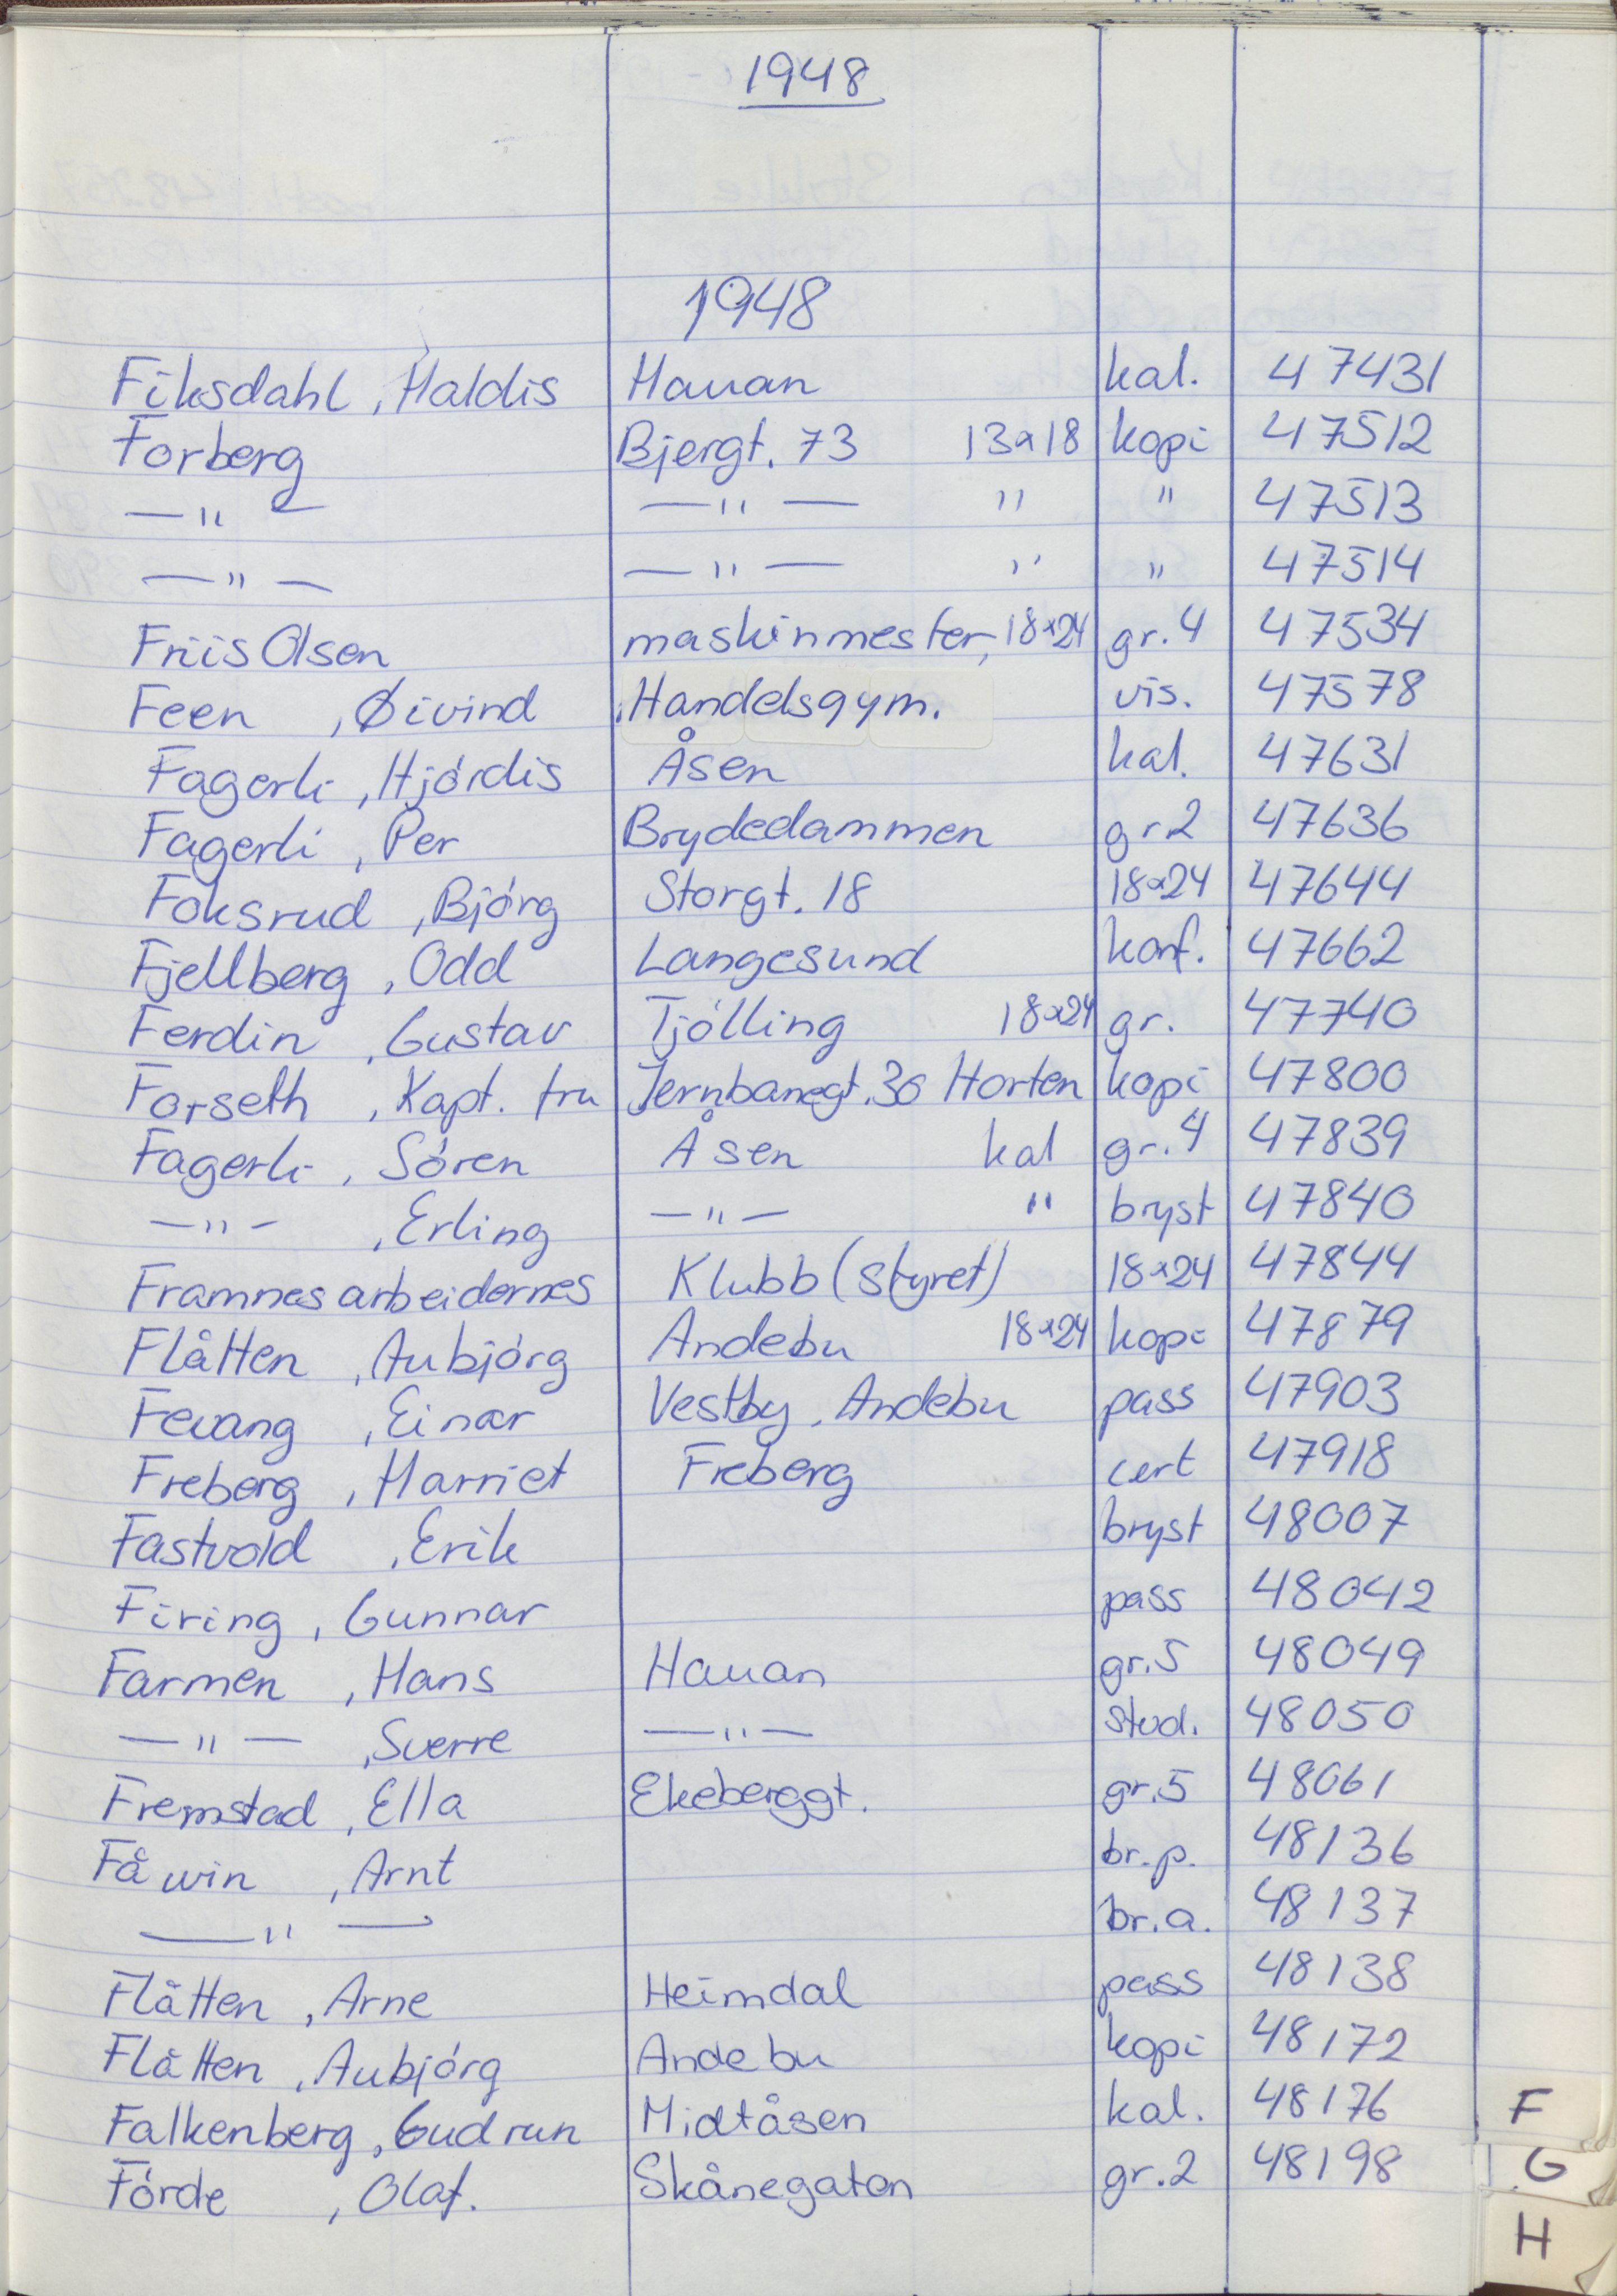 1948
1948
Fiksdahl, Haldis Hauan kal. 47431
Forberg Bjergt. 73 13x18 kopi 47512
—"— —"— " " 47513
—"— —"— " " 47514
Friis Olsen maskinmester, 18x24 gr. 4 47534
Feen, Øivind Handelsgym. vis. 47578
Fagerli, Hjórdis Åsen kal. 47631
Fagerli, Per Brydedammen gr2 47636
Foksrud, Bjórg Storgt. 18 18x24 47644
Fjellberg, Odd Langesund konf. 47662
Ferdin, Gustav Tjólling 18x24 gr. 47740
Forseth, Kapt. fru Jernbanegt. 30 Horten kopi 47800
Fagerli, Sóren Åsen kal gr. 4 47839
—"—, Erling —"— " bryst 47840
Framnes arbeidernes Klubb (styret) 18x24 47844
Flåtten, Aubjórg Andebu 18x24 kopi 47879
Fevang, Einar Vestby, Andebu pass 47903
Freberg, Harriet Freberg cert 47918
Fastvold, Erik bryst 48007
Firing, Gunnar pass 48042
Farmen, Hans Hauan gr. 5 48049
—"—, Sverre —"— stud. 48050
Fremstad, Ella Ekeberggt. gr. 5 48061
Fåwin, Arnt br. p. 48136
—"— br. a. 48137
Flåtten, Arne Heimdal pass 48138
Flåtten, Aubjórg Andebu kopi 48172
Falkenberg, Gudrun Midtåsen kal. 48176
Fórde, Olaf. Skånegaten gr. 2 48198
F
G
H